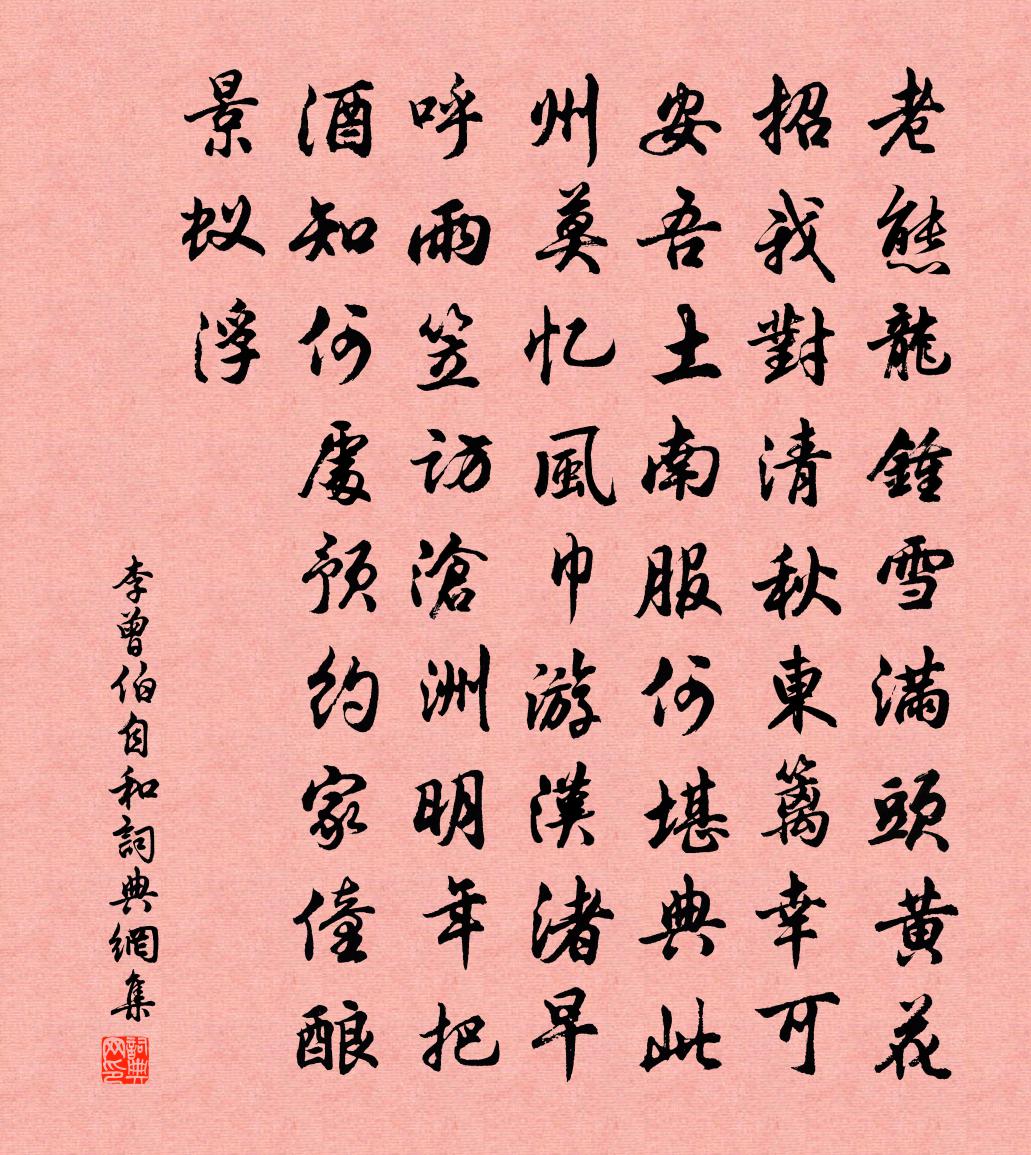 老態龍鍾雪滿頭黄花
招我對清秋東籬幸可
安吾土南服何堪典此
州莫忆風巾游漢渚早
呼雨笠访滄洲明年把
酒知何處预約家僮酿
景蚁浮
李曾伯自和詞典網集
詞典网印